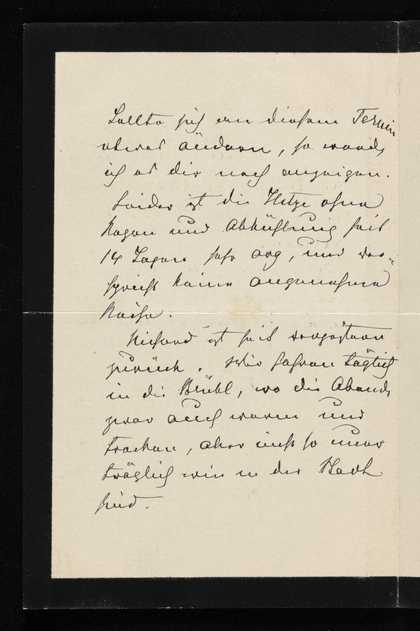 Sollte sich an diesem Termin
etwas ändern, so werde
ich es dir noch anzeigen.
Leider ist die Hitze ohne
Regen und Abkühlung seit
14 Tagen sehr arg, und ver-
spricht keine angenehme
Reise.
Richard ist seit vorgestern
zurück. Wir fahren täglich
in die Brühl, wo die Abende
zwar auch warm und
trocken, aber nicht so uner
träglich wie in der Stadt
sind.